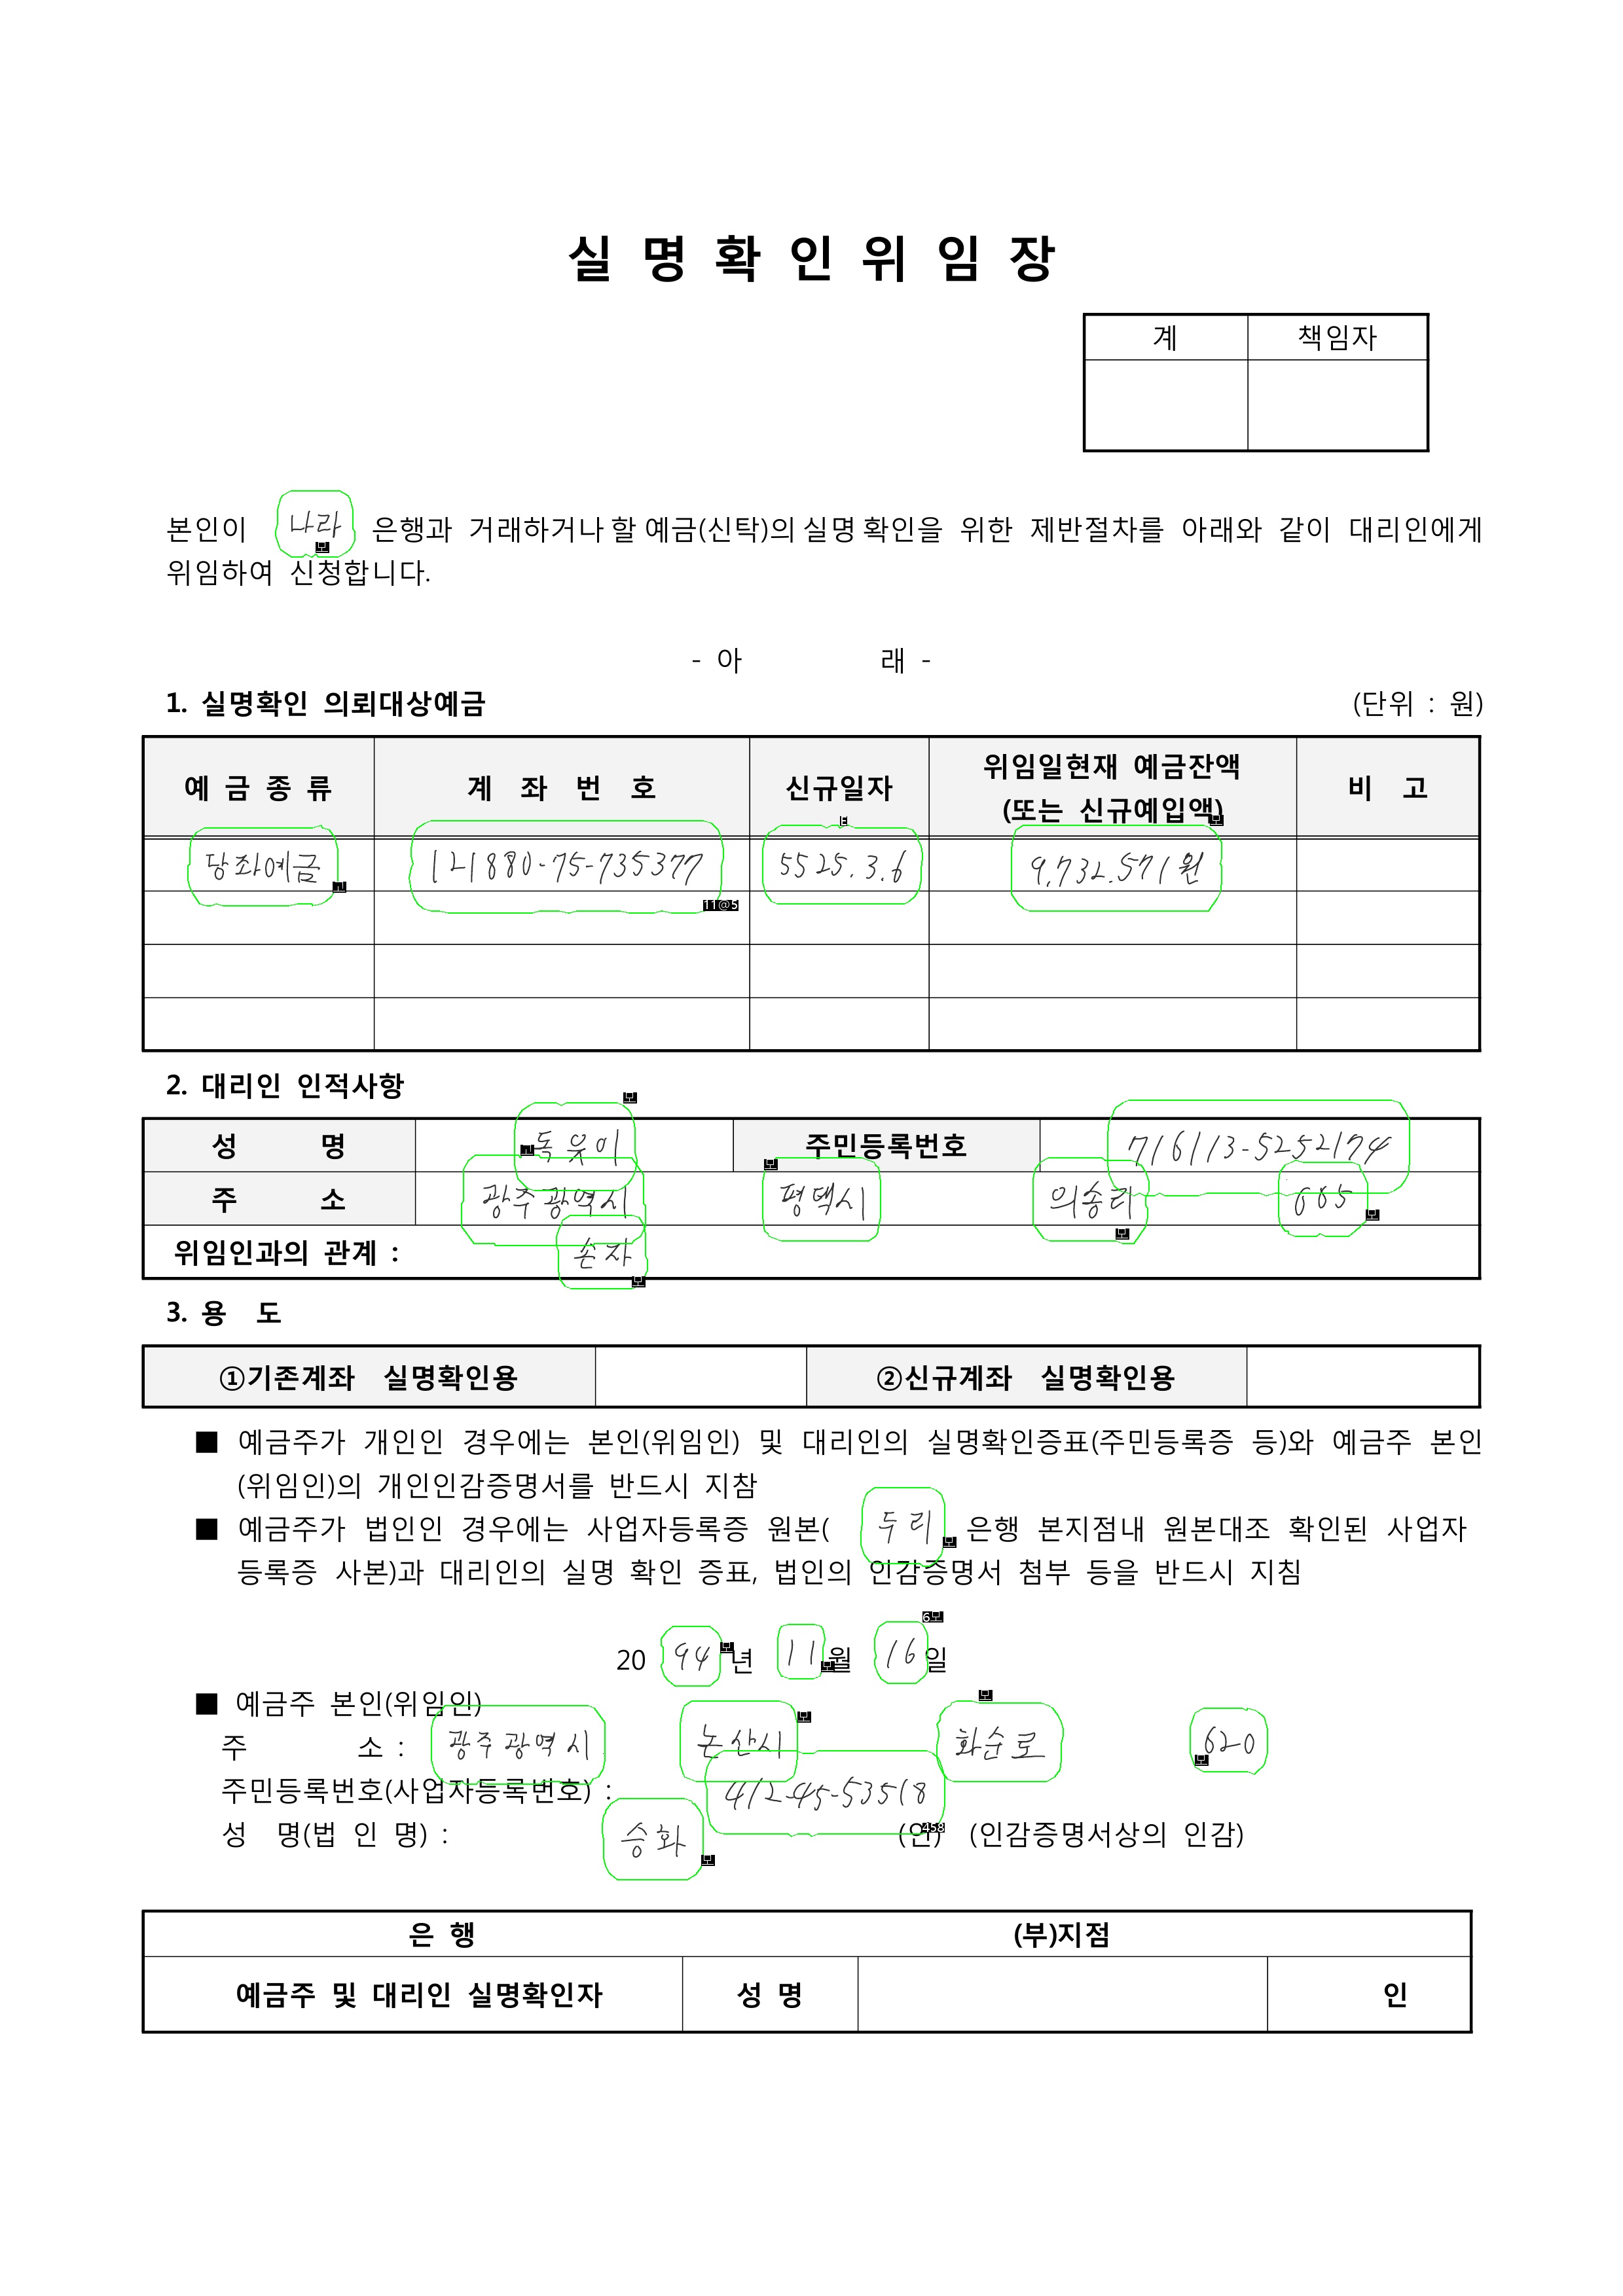 실 명 확 인 위 임 장
계 책임자
본인이 나라 은행과 거래하거나 할 예금(신탁)의 실명 확인을 위한 제반절차를 아래와 같이 대리인에게
위임하여 신청합니다.
- 아 래 -
1. 실명확인 의뢰대상예금 (단위 : 원)
예 금 종 류 계 좌 번 호 신규일자 위임일현재 예금잔액
(또는 신규예입액) 비 고
당좌예금 121880-75-735377 5525.3.6 9,732,571원
2. 대리인 인적사항
성 명 독윷이 주민등록번호 716113-5252174
주 소 광주광역시 평택시 의송리 665
위임인과의 관계 : 손자
3. 용 도
①기존계좌 실명확인용 ②신규계좌 실명확인용
■ 예금주가 개인인 경우에는 본인(위임인) 및 대리인의 실명확인증표(주민등록증 등)와 예금주 본인
(위임인)의 개인인감증명서를 반드시 지참
■ 예금주가 법인인 경우에는 사업자등록증 원본( 두리 은행 본지점내 원본대조 확인된 사업자
등록증 사본)과 대리인의 실명 확인 증표, 법인의 인감증명서 첨부 등을 반드시 지침
20 94 년 11 월 16 일
■ 예금주 본인(위임인)
주 소 : 광주광역시 논산시 화순로 620
주민등록번호(사업자등록번호) : 412-45-53518
성 명(법 인 명) : 승화 (인) (인감증명서상의 인감)
은 행 (부)지점
예금주 및 대리인 실명확인자 성 명 인